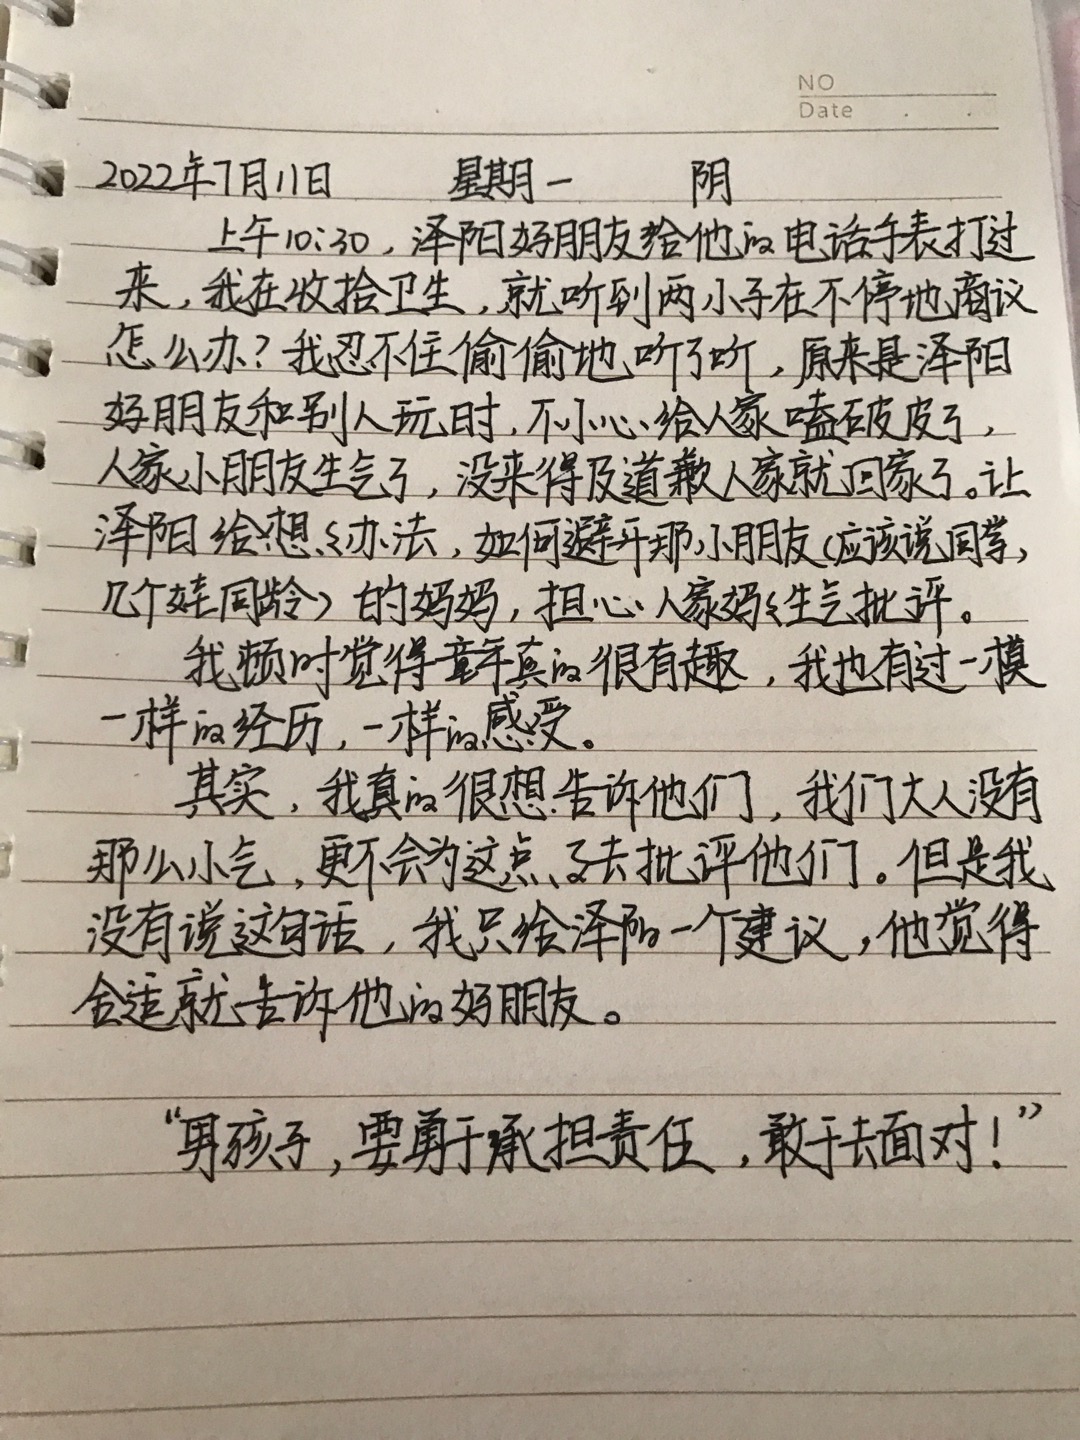 NO
Date
2022年7月11日 星期一 阴
上午10:30，泽阳好朋友给他的电话手表打过
来，我在收拾卫生，就听到两小子在不停地商议
怎么办？我忍不住偷偷地听了听，原来是泽阳
好朋友和别人玩时，不小心给人家嗑破皮了，
人家小朋友生气了，没来得及道歉人家就回家了。让
泽阳给想々办法，如何避开那小朋友（应该说同学，
几个娃同龄）的妈妈，担心人家妈々生气批评。
我顿时觉得童年真的很有趣，我也有过一模
一样的经历，一样的感受。
其实，我真的很想告诉他们，我们大人没有
那么小气，更不会为这点了去批评他们。但是我
没有说这句话，我只给泽阳一个建议，他觉得
合适就告诉他的好朋友。
“男孩子，要勇于承担责任，敢于去面对！”